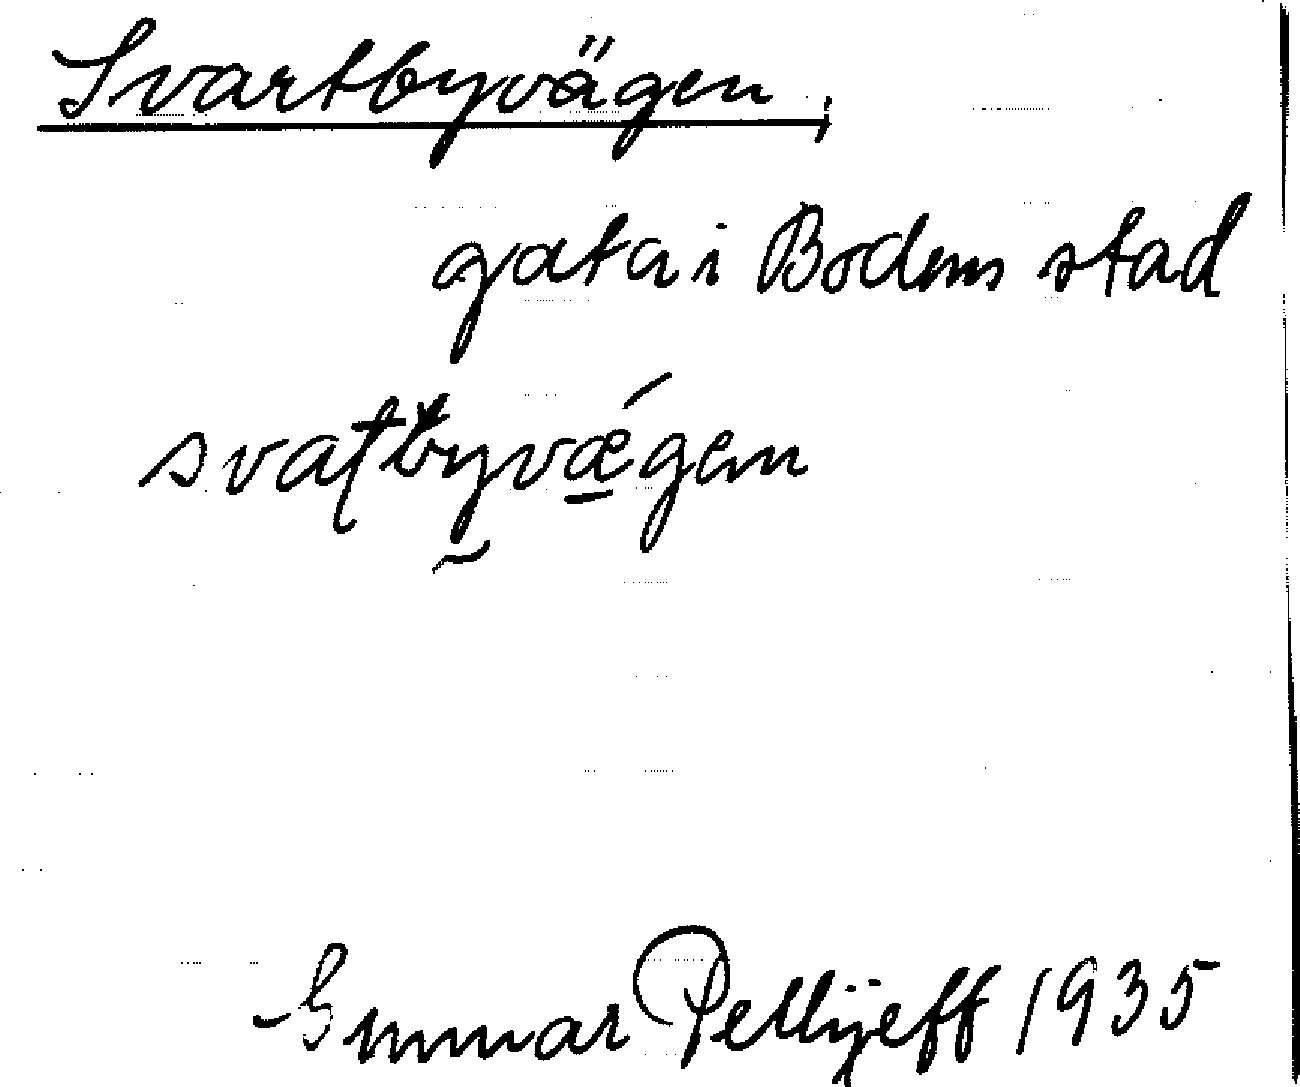 Svartbyvägen,
gata i Bodens stad
svaʈbyvǽgen
Gunnar Pellijeff 1935